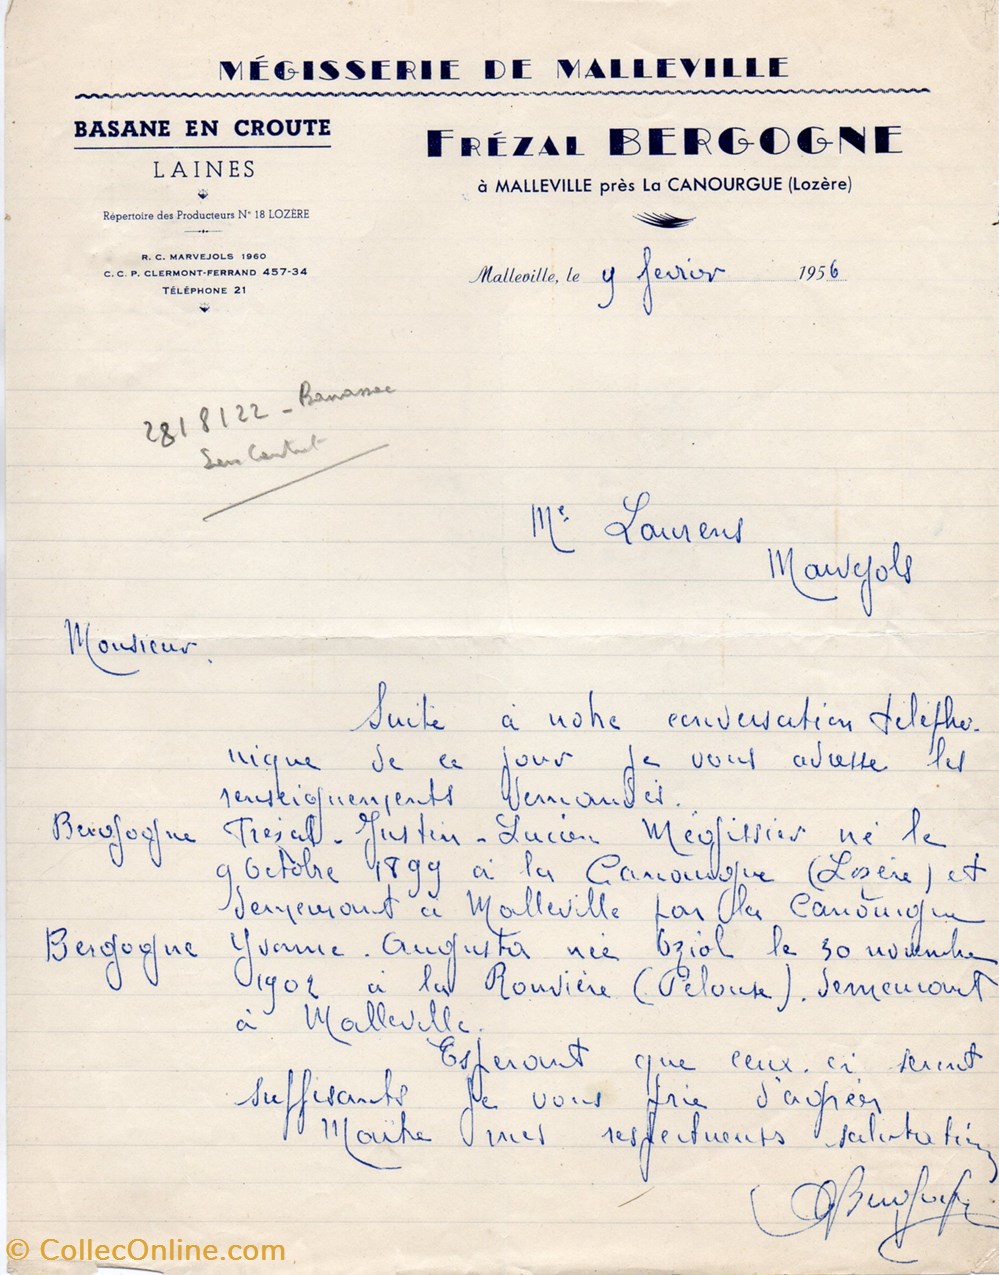 MÉGISSERIE DE MALLEVILLE
BASANE EN CROUTE
LAINES
Répertoire des Producteurs N° 18 LOZÈRE
R. C. MARVEJOLS 1960
C. C. P. CLERMONT-FERRAND 457-34
TÉLÉPHONE 21
FRÉZAL BERGOGNE
à MALLEVILLE près La CANOURGUE (Lozère)
Malleville, le 9 fevrier 1956
28/8/22 - Banassac
Sans Contrat
Me Laurens
Marvejols
Monsieur.
Suite à notre conversation télépho-
nique de ce jour je vous adresse les
renseignements demandés.
Bergogne Frézal-Justin-Lucien Mégissier né le
9 Octobre 1899 à la Canourgue (Lozère) et
demeurant à Malleville par la Canourgue
Bergogne Yvonne-Augusta née Oziol le 30 novembre
1902 à la Rouvière (Pelouse). demeurant
à Malleville.
Esperant que ceux-ci seront
suffisants je vous prie d'agréer
Maître mes respectueuses salutations
Bergogne
© CollecOnline.com